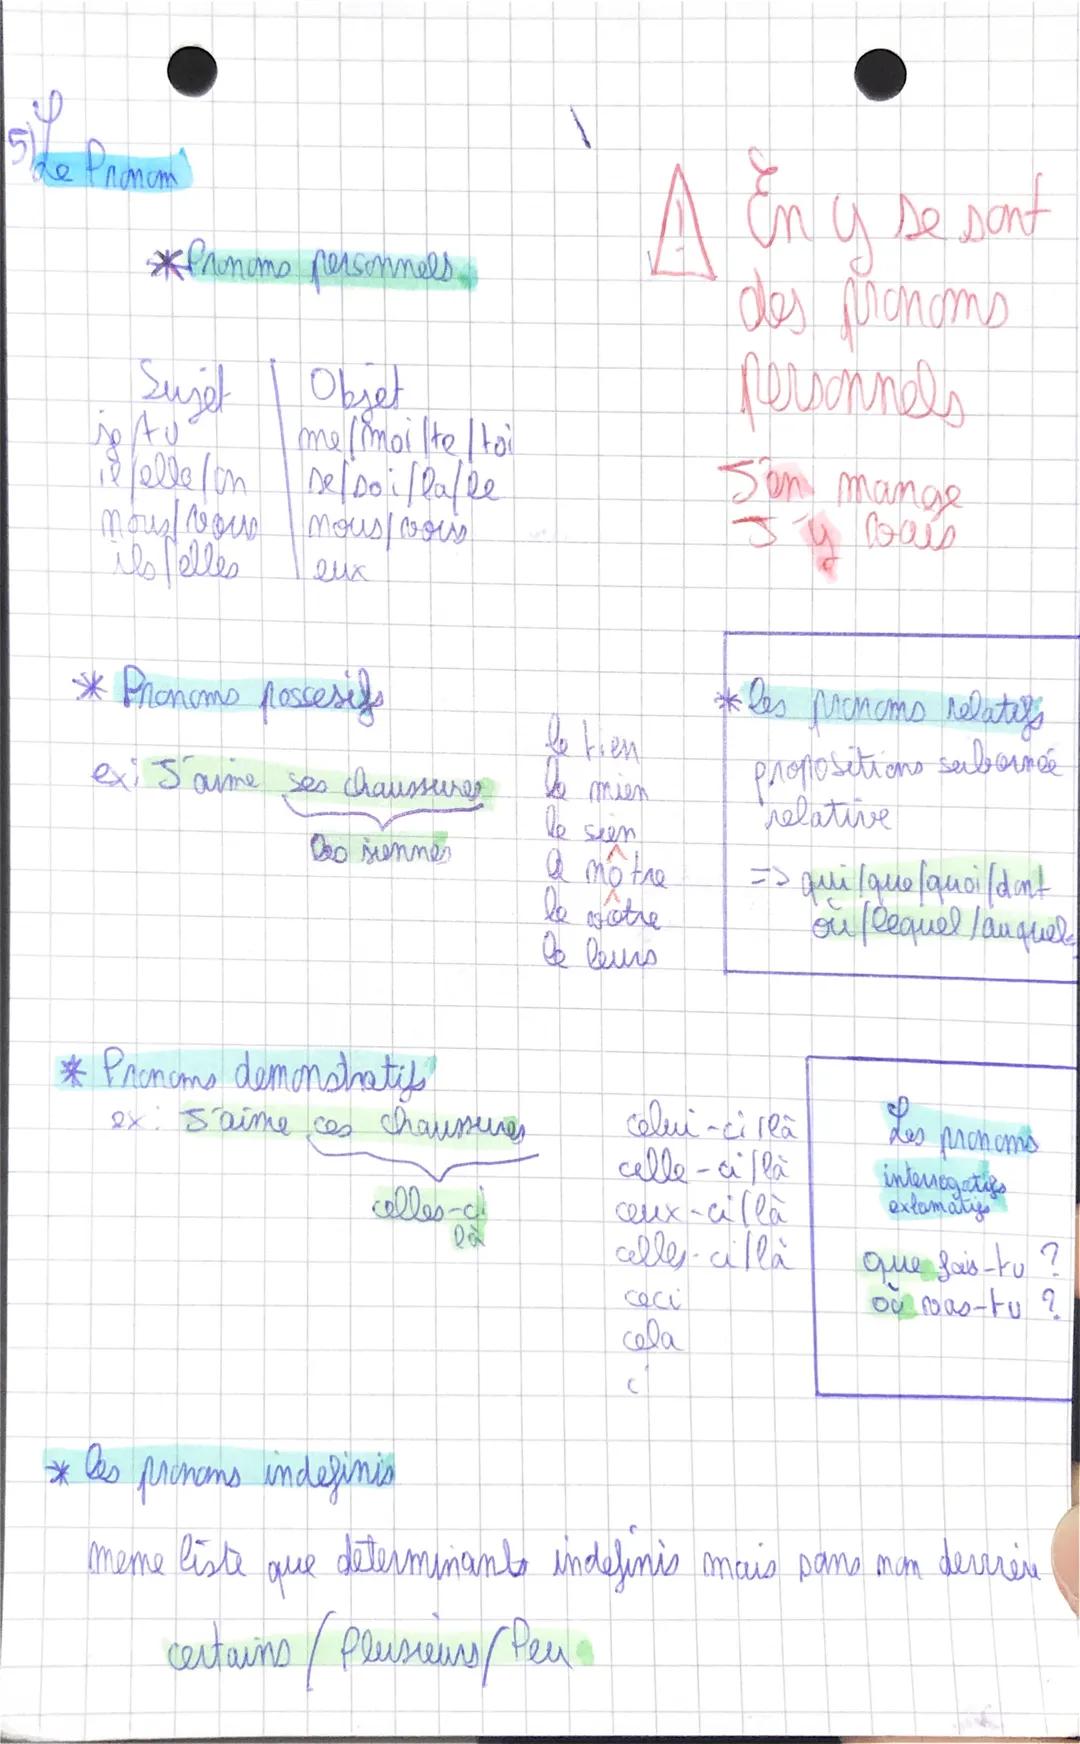 5) Le Pronom
* Pronoms personnels
Sujet | Objet
je/tu | me/moi/te/toi
il/elle/on | se/soi/la/le
nous/vous | nous/vous
ils/elles | eux
En y se sont
des pronoms
personnels
J'en mange
J'y vais
* Pronoms possesifs
ex: J'aime ses chaussures
les siennes
le tien
le mien
le sien
le nôtre
le vôtre
le leurs
* les pronoms relatifs
propositions subornée
relative
=> qui/que/quoi/dont
où/lequel/auquel
* Pronoms demonstratifs
ex: J'aime ces chaussures
celles-ci
là
celui-ci/là
celle-ci/là
ceux-ci/là
celles-ci/là
ceci
cela
c'
Les pronoms
interrogatifs
exlamatifs
que fais-tu ?
où vas-tu ?
* les pronoms indefinis
meme liste que determinants indefinis mais sans nom derrière
certains / Plusieurs / Peu